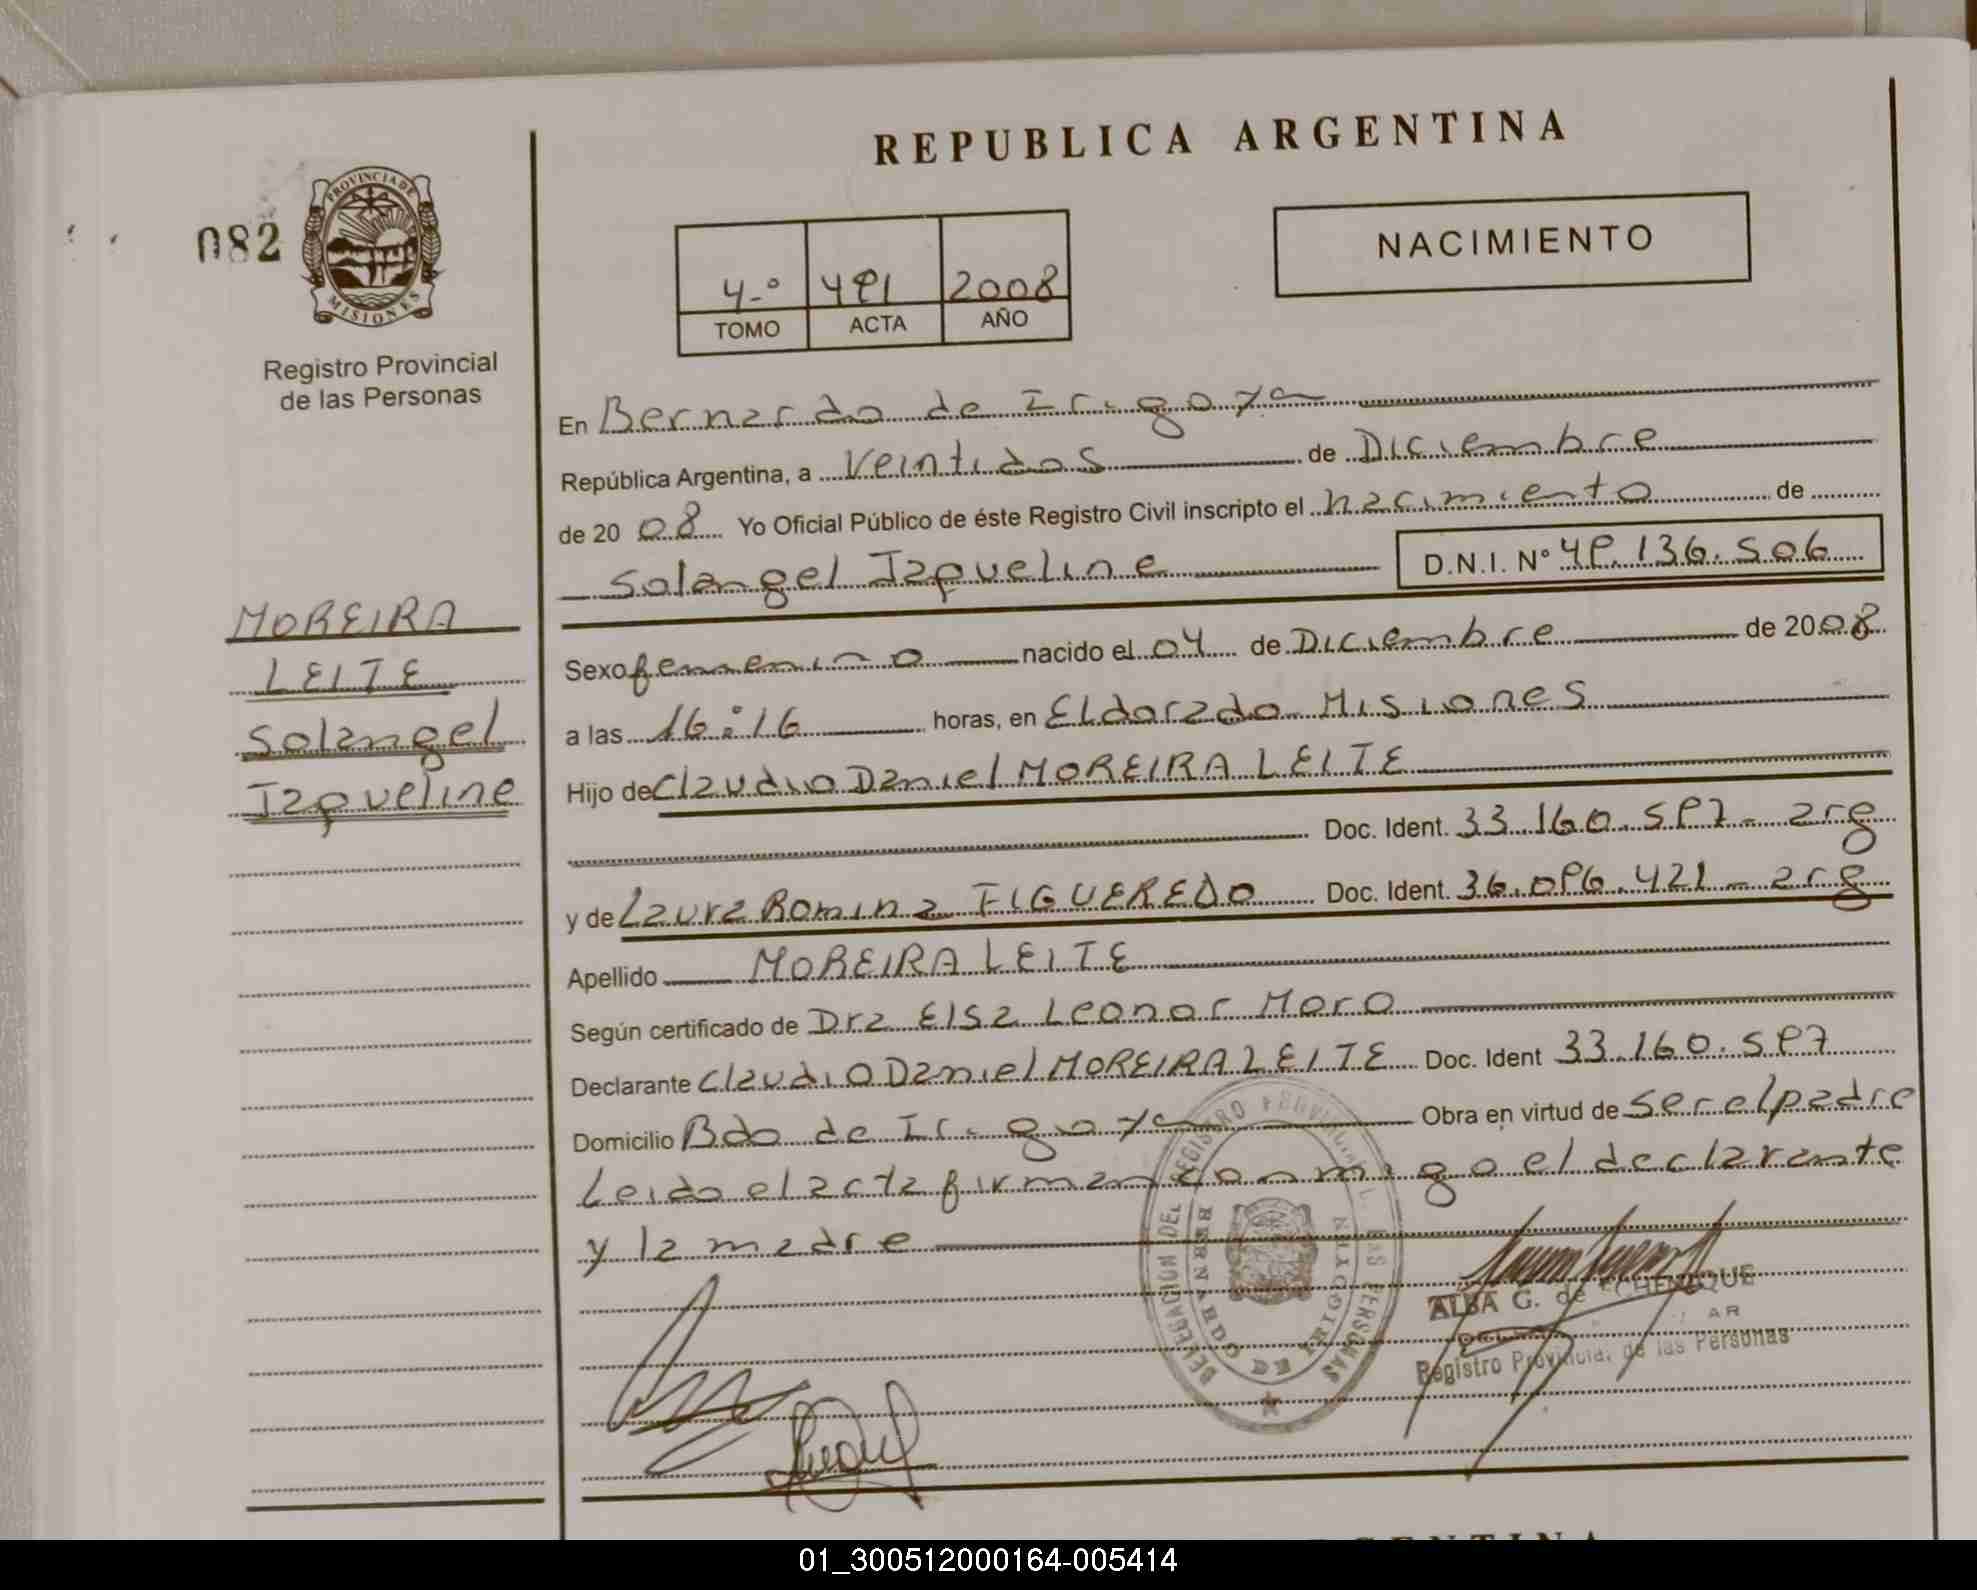 REPUBLICA ARGENTINA
082
PROVINCIA DE
MISIONES
Registro Provincial
de las Personas
MOREIRA
LEITE
Solangel
Jaqueline
4-º 491 2008
TOMO ACTA AÑO
NACIMIENTO
En Bernardo de Irigoyen
República Argentina, a Veintidos de Diciembre
de 2008 Yo Oficial Público de éste Registro Civil inscripto el nacimiento de
Solangel Jaqueline D.N.I. Nº 49.136.506
Sexo femenino nacido el 04 de Diciembre de 2008
a las 16:16 horas, en Eldorado Misiones
Hijo de Claudio Daniel MOREIRA LEITE
Doc. Ident. 33.160.597 - arg
y de Laura Romina FIGUEREDO Doc. Ident. 36.096.421 - arg
Apellido MOREIRA LEITE
Según certificado de Dra Elsa Leonor Moro
Declarante Claudio Daniel MOREIRA LEITE Doc. Ident 33.160.597
Domicilio Bdo de Irigoyen Obra en virtud de ser el padre
Leido el acta firman conmigo el declarante
y la madre
DELEGACION DEL REGISTRO PROVINCIAL DE LAS PERSONAS
BERNARDO DE IRIGOYEN
ALBA G. de ECHENIQUE
Registro Provincial de las Personas
01_300512000164-005414